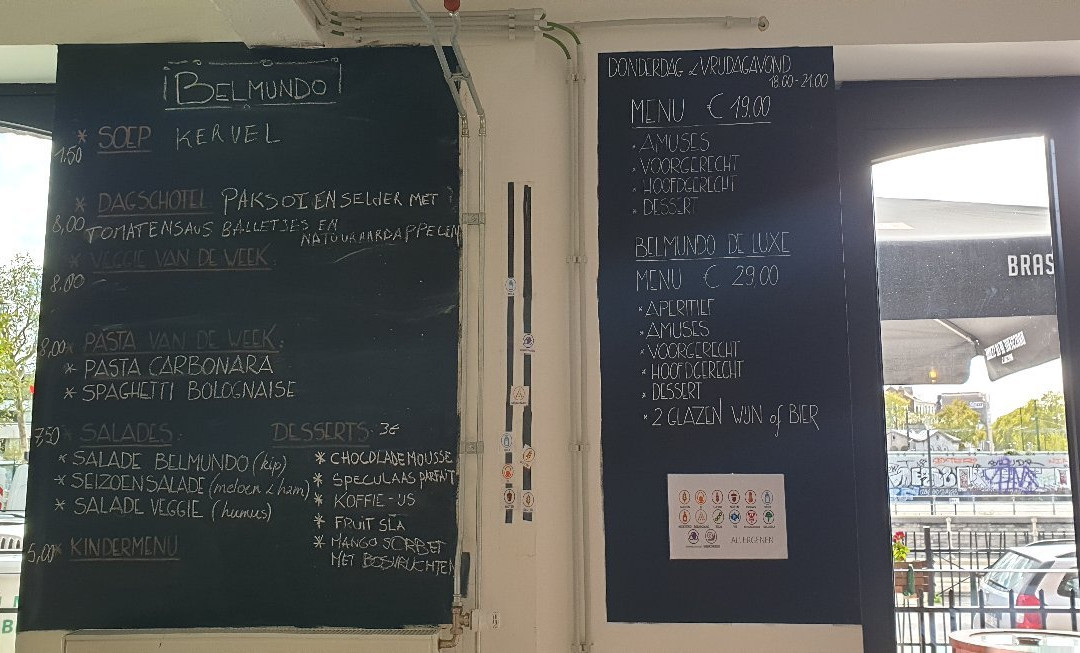 BELMUNDO
* SOEP KERVEL
1.50
* DAGSCHOTEL PAKSOI EN SELDER MET
8,00 TOMATENSAUS BALLETJES EN
NATUURAARDAPPELEN
* VEGGIE VAN DE WEEK:
8.00
8,00 * PASTA VAN DE WEEK:
* PASTA CARBONARA
* SPAGHETTI BOLOGNAISE
7,50 * SALADES:
* SALADE BELMUNDO (kip)
* SEIZOENSALADE (meloen & ham)
* SALADE VEGGIE (humus)
5,00 * KINDERMENU
DESSERTS: 3€
* CHOCOLADEMOUSSE
* SPECULAAS PARFAIT
* KOFFIE-IJS
* FRUITSLA
* MANGO SORBET
MET BOSVRUCHTEN
DONDERDAG & VRIJDAGAVOND
18.00-21.00
MENU € 19.00
* AMUSES
* VOORGERECHT
* HOOFDGERECHT
* DESSERT
BELMUNDO DE LUXE
MENU € 29,00
* APERITIEF
* AMUSES
* VOORGERECHT
* HOOFDGERECHT
* DESSERT
* 2 GLAZEN WIJN of BIER
ALLERGENEN
BRAS